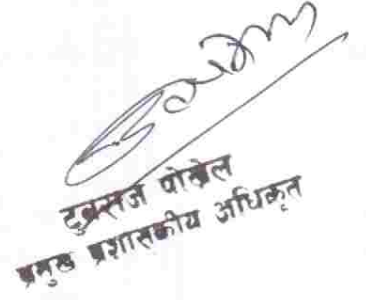 टुबराज पोखेल
प्रमुख प्रशासकीय अधिकृत